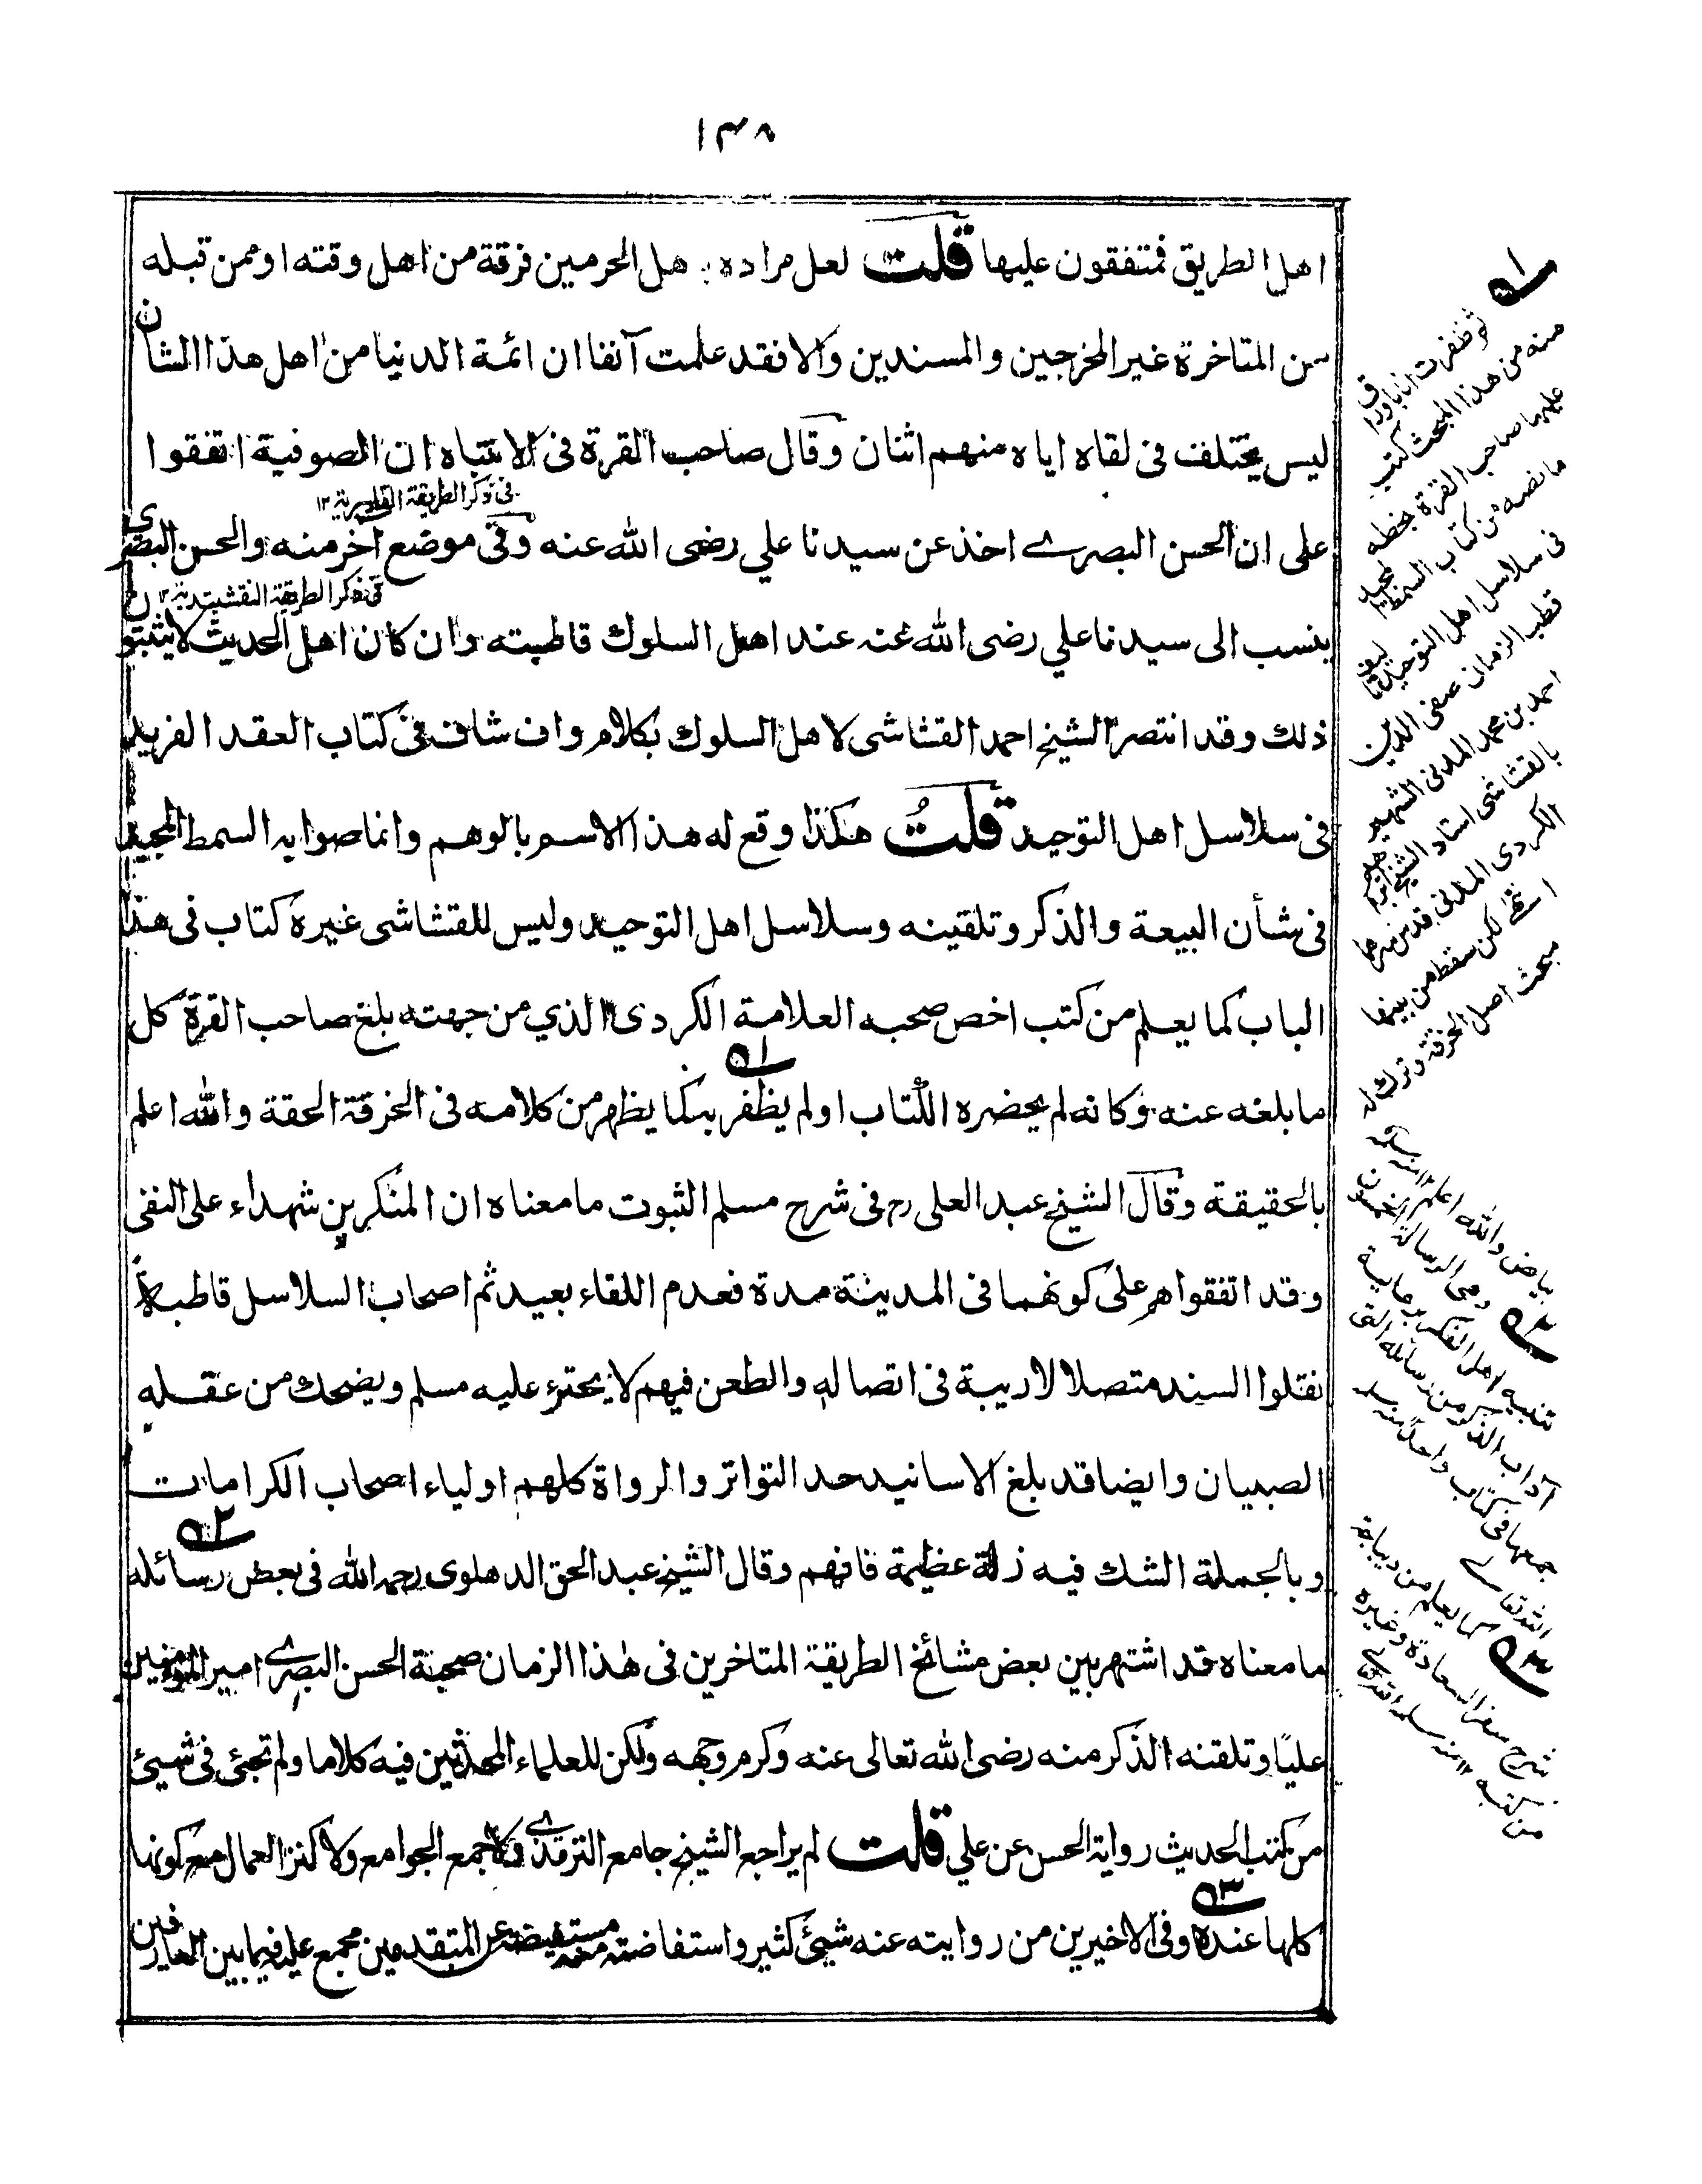 ١٣٨
اهل الطريق فمتفقون عليها قلت لعل مراده هل الحرمين فرقة من اهل وقته او ممن قبله
من المتاخرة غير المخرجين والمسندين والا فقد علمت آنفا ان ائمة الدنيا من اهل هذا الشان
ليس يختلف فى لقاه اياه منهم اثنان وقال صاحب القرة فى الانتباه ان الصوفية اتفقوا
فى ذكر الطريقة القادرية ١٢
على ان الحسن البصرے اخذ عن سيدنا علي رضى الله عنه وفى موضع اخر منه والحسن البصرى
فى ذكر الطريقة النقشبندية ١٢
ينسب الى سيدنا علي رضى الله عنه عند اهل السلوك قاطبته وان كان اهل الحديث لا يثبتون
ذلك وقد انتصر الشيخ احمد القشاشى لاهل السلوك بكلام واف شاف فى كتاب العقد الفريد
فى سلاسل اهل التوحيد قلتُ هكذا وقع له هذا الاسم بالوهم وانما صوابه السمط المجيد
فى شأن البيعة والذكر وتلقينه وسلاسل اهل التوحيد وليس للقشاشى غيره كتاب فى هذا
الباب كما يعلم من كتب اخص صحبه العلامة الكردى الذي من جهته بلغ صاحب القرة كل
ما بلغه عنه وكانه لم يحضره الكتاب او لم يظفر به كما يظهر من كلامه فى الخرقة الحقة والله اعلم
بالحقيقة وقال الشيخ عبد العلى رح فى شرح مسلم الثبوت ما معناه ان المنكرين شهداء على النفى
وقد اتفقوا هم على كونهما فى المدينة مدة فعدم اللقاء بعيد ثم اصحاب السلاسل قاطبةً
نقلوا السند متصلا لا ريبة فى اتصاله والطعن فيهم لا يجترء عليه مسلم ويضحك من عقله
الصبيان وايضا قد بلغ الاسانيد حد التواتر والرواة كلهم اولياء اصحاب الكرامات
وبالجملة الشك فيه زلة عظيمة فافهم وقال الشيخ عبد الحق الدهلوى رحمه الله فى بعض رسائله
ما معناه قد اشتهر بين بعض مشائخ الطريقة المتاخرين فى هذا الزمان صحبة الحسن البصرے امير المؤمنين
عليًا وتلقنه الذكر منه رضى الله تعالى عنه وكرم وجهه ولكن للعلماء المحدثين فيه كلاما ولم تجئ فى شيئ
من كتب الحديث رواية الحسن عن علي قلت لم يراجع الشيخ جامع الترمذے ولا جمع الجوامع ولا كنز العمال مع كونها
كلها عنده وفى الاخيرين من روايته عنه شيئ كثير واستفاضته مستفيضة عن المتقدمين مجمع عليه فيما بين العارفين
١ه ثم ظفرت انا باوراق
منه من هذا المبحث كتب
عليها صاحب القرة بخطه
ما نصه من كتاب السمط المجيد
فى سلاسل اهل التوحيد تاليف
قطب الزمان صفى الدين
احمد بن محمد المدنى الشهير
بالقشاشى استاد الشيخ ابراهيم
الكردى المدنى قدس سرهما
انتهى لكن سقط من بينها
مبحث اصل الخرقة وترك له
بياض والله اعلم ١٢ منه سلمه
٢ه وهى الرسالة الخمسون
تنبيه اهل الفكر برعاية
آداب الذكر من رسائله التى
جمعها فى كتاب واحد ١٢ منه سلمه
الله تعالے
٣ه كما يعلم من ديباجة
شرح سفر السعادة وغيره
من كتبه ١٢ منه سلمه الله تعالے